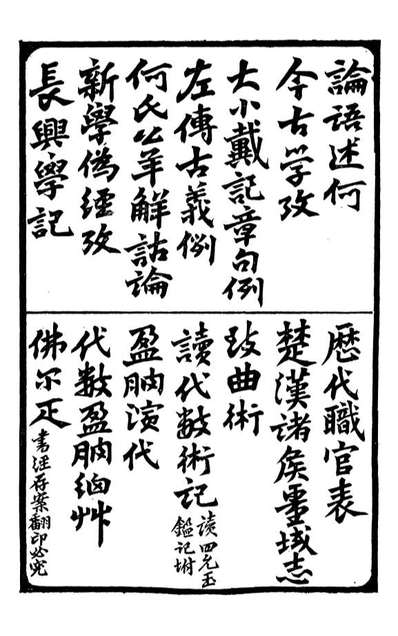 論語述何
今古学攷
大小戴記章句例
左傳古義例
何氏公羊解詁論
新學僞經攷
長興學記
歷代職官表
楚漢諸矦畺域志
攷曲術
讀代數術記
讀四元玉
鑑記坿
盈朒演代
代數盈朒細艸
佛尔疋
書經存案翻印必究